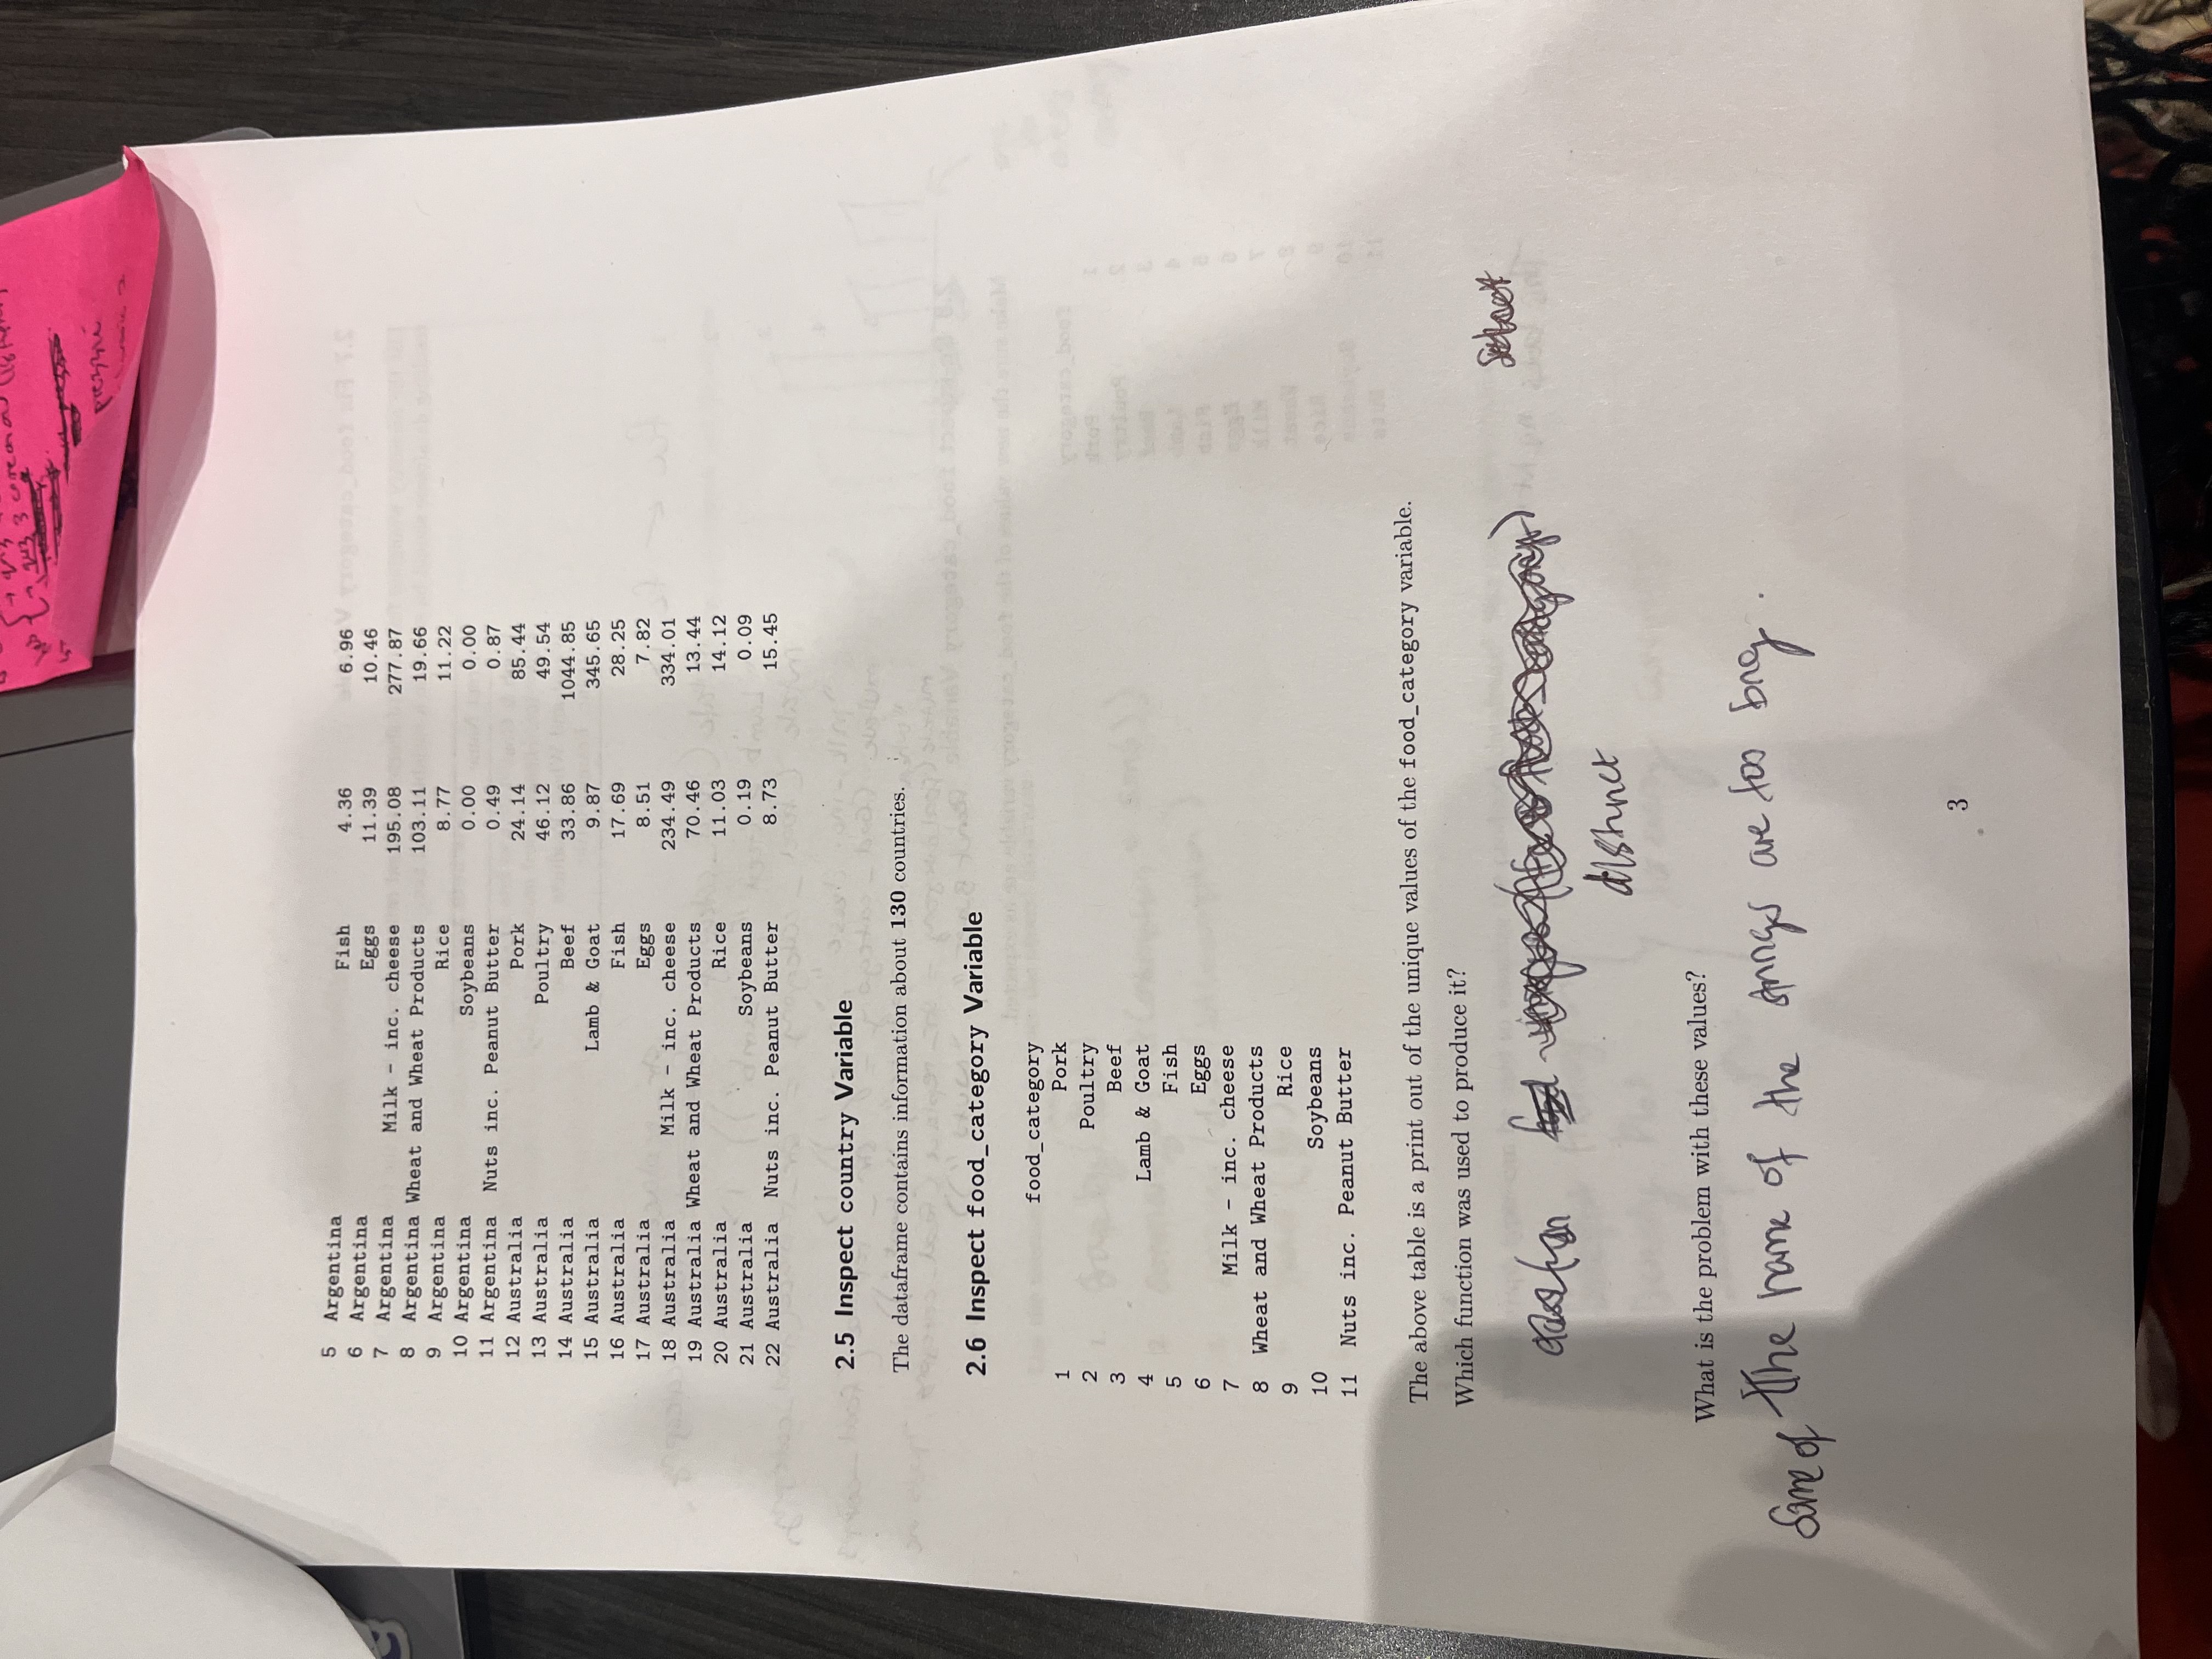 prezzi
5 Argentina Fish 4.36 6.96
6 Argentina Eggs 11.39 10.46
7 Argentina Milk - inc. cheese 195.08 277.87
8 Argentina Wheat and Wheat Products 103.11 19.66
9 Argentina Rice 8.77 11.22
10 Argentina Soybeans 0.00 0.00
11 Argentina Nuts inc. Peanut Butter 0.49 0.87
12 Australia Pork 24.14 85.44
13 Australia Poultry 46.12 49.54
14 Australia Beef 33.86 1044.85
15 Australia Lamb & Goat 9.87 345.65
16 Australia Fish 17.69 28.25
17 Australia Eggs 8.51 7.82
18 Australia Milk - inc. cheese 234.49 334.01
19 Australia Wheat and Wheat Products 70.46 13.44
20 Australia Rice 11.03 14.12
21 Australia Soybeans 0.19 0.09
22 Australia Nuts inc. Peanut Butter 8.73 15.45
2.5 Inspect country Variable
The dataframe contains information about 130 countries.
2.6 Inspect food_category Variable
food_category
1 Pork
2 Poultry
3 Beef
4 Lamb & Goat
5 Fish
6 Eggs
7 Milk - inc. cheese
8 Wheat and Wheat Products
9 Rice
10 Soybeans
11 Nuts inc. Peanut Butter
The above table is a print out of the unique values of the food_category variable.
Which function was used to produce it?
select
distinct
What is the problem with these values?
Some of The name of the strings are too long.
3